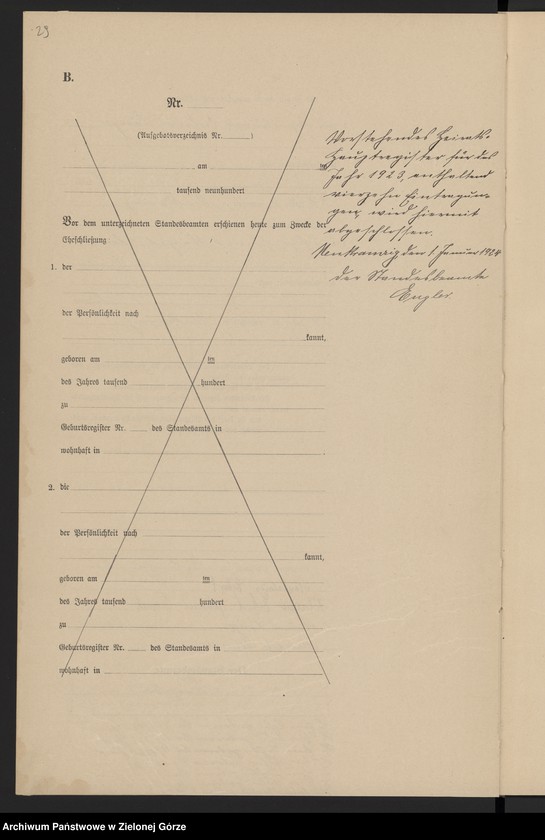 29
B.
Nr.
(Aufgebotsverzeichnis Nr. )
am ten
tausend neunhundert
Vor dem unterzeichneten Standesbeamten erschienen heute zum Zwecke der
Eheschließung
1. der
der Persönlichkeit nach
kannt,
geboren am ten
des Jahres tausend hundert
zu
Geburtsregister Nr. des Standesamts in
wohnhaft in
2. die
der Persönlichkeit nach
kannt,
geboren am ten
des Jahres tausend hundert
zu
Geburtsregister Nr. des Standesamts in
wohnhaft in
Vorstehendes Heirats-
Hauptregister für das
Jahr 1923, enthaltend
vierzehn Eintragun-
gen, wird hiermit
abgeschlossen.
den 1. Januar 1924
Der Standesbeamte
Engler
Archiwum Państwowe w Zielonej Górze